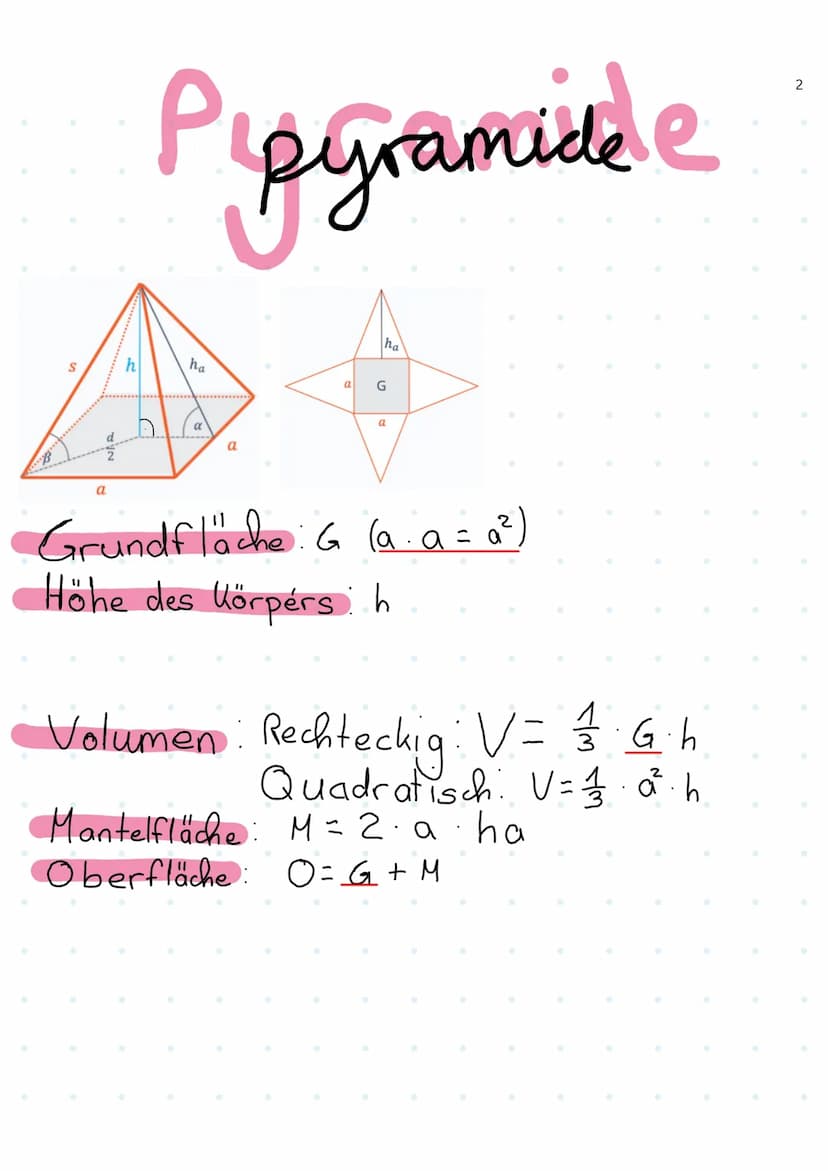 2
Pyramide
pyramide
s
h
hₐ
α
β
d
2
a
a
hₐ
a
G
a
Grundfläche: G (a · a = a²)
Höhe des Körpérs: h
Volumen: Rechteckig: V = 1/3 · G · h
Quadratisch: V = 1/3 · a² · h
Mantelfläche: M = 2 · a · ha
Oberfläche: O = G + M